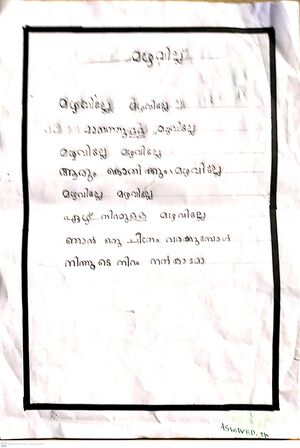 മഴവില്ല്
മഴവില്ലേ മഴവില്ലേ
മാനത്തുള്ള മഴവില്ലേ
മഴവില്ലേ മഴവില്ലേ
ആരും കൊതിക്കും മഴവില്ലേ
മഴവില്ലേ മഴവില്ലേ
ഏഴ് നിറമുള്ള മഴവില്ലേ
ഞാൻ ഒരു ചിത്രം വരക്കുമ്പോൾ
നിന്നുടെ നിറം നൽകാമോ